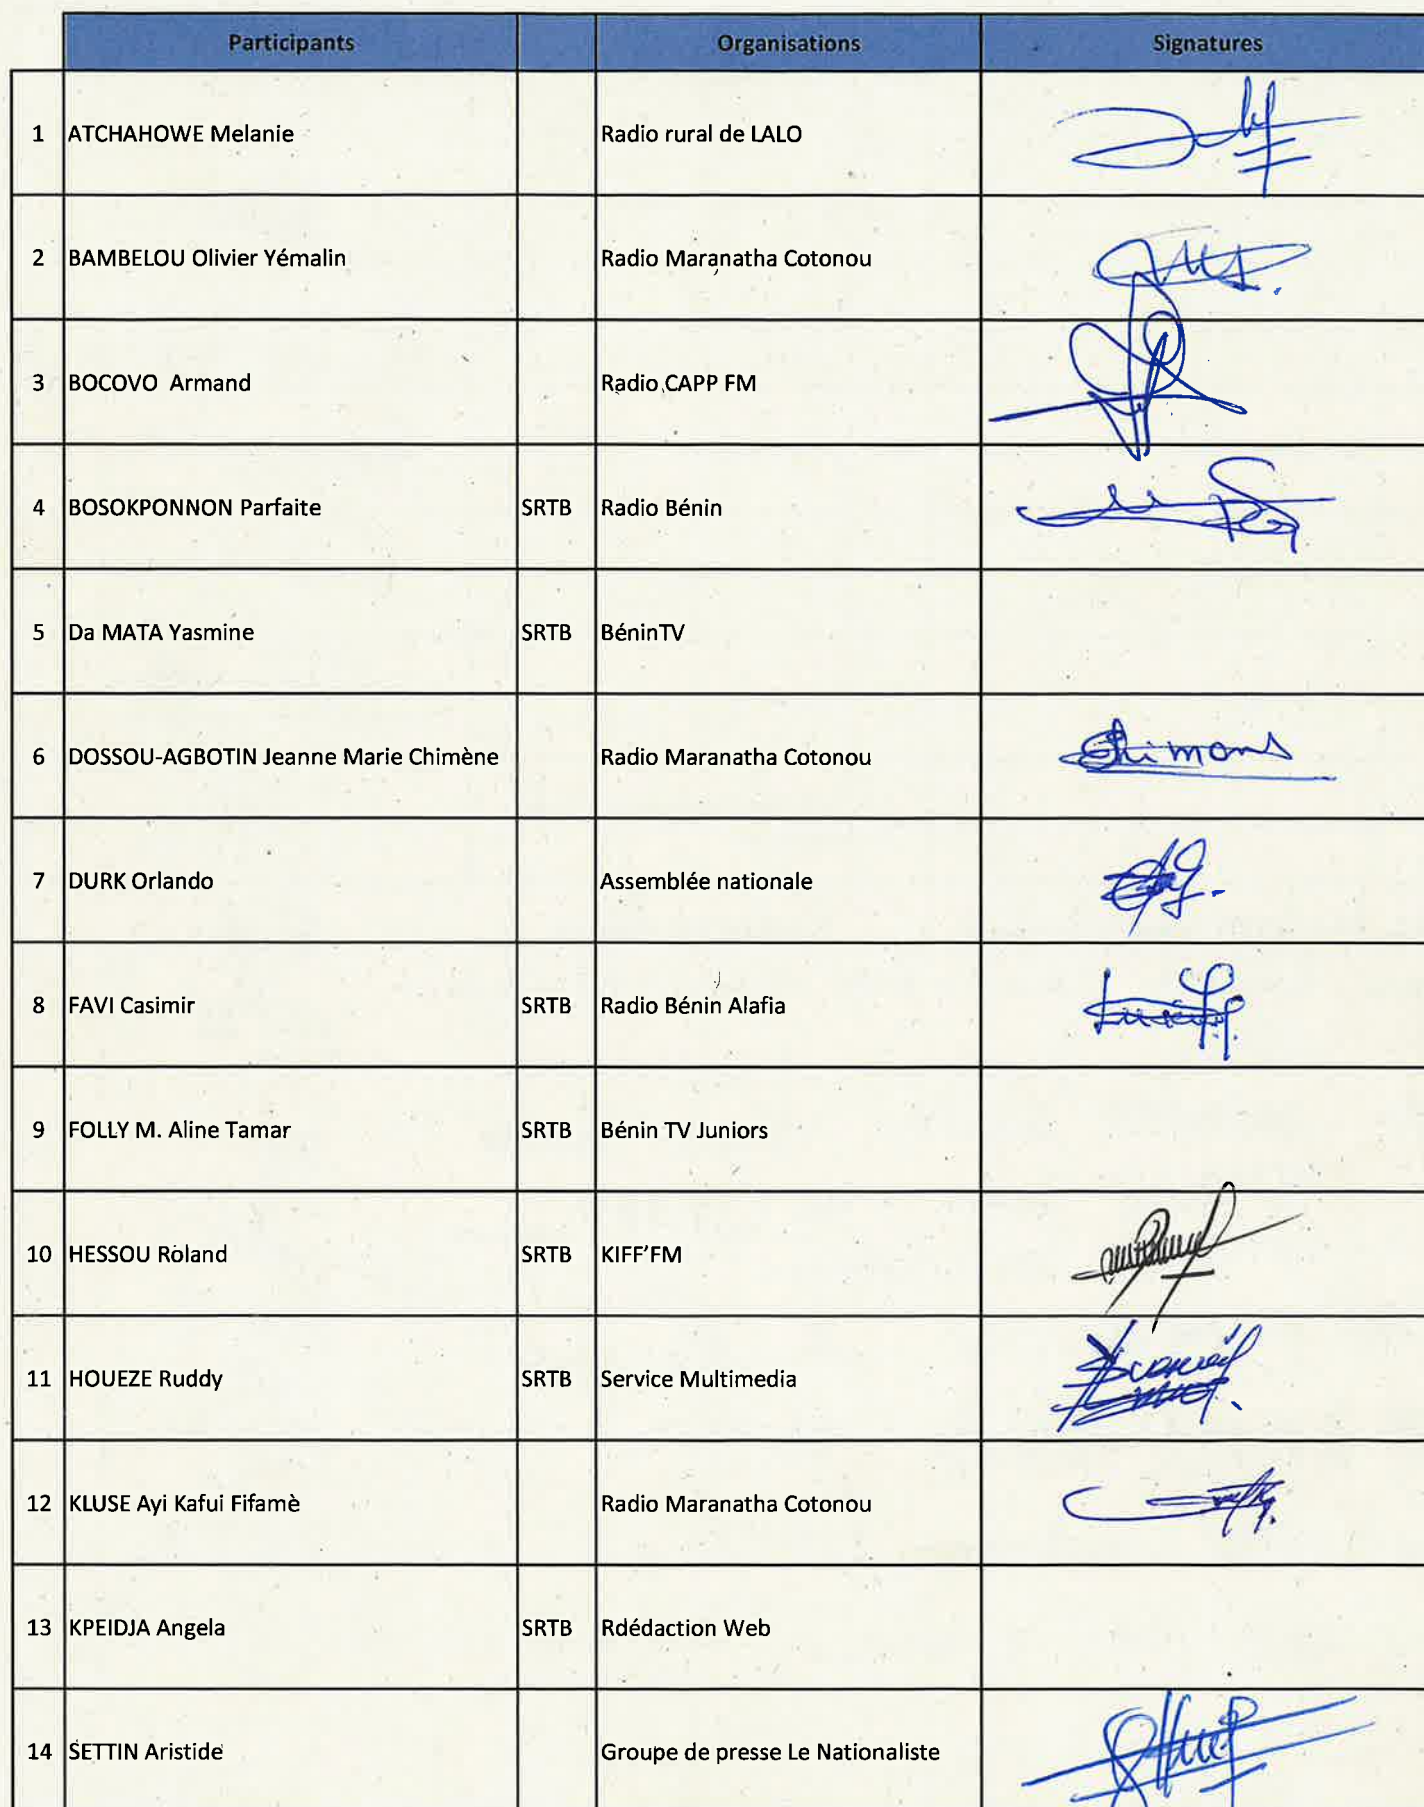 Participants Organisations Signatures
1 ATCHAHOWE Melanie Radio rural de LALO
2 BAMBELOU Olivier Yémalin Radio Maranatha Cotonou
3 BOCOVO Armand Radio CAPP FM
4 BOSOKPONNON Parfaite SRTB Radio Bénin
5 Da MATA Yasmine SRTB BéninTV
6 DOSSOU-AGBOTIN Jeanne Marie Chimène Radio Maranatha Cotonou
7 DURK Orlando Assemblée nationale
8 FAVI Casimir SRTB Radio Bénin Alafia
9 FOLLY M. Aline Tamar SRTB Bénin TV Juniors
10 HESSOU Roland SRTB KIFF'FM
11 HOUEZE Ruddy SRTB Service Multimedia
12 KLUSE Ayi Kafui Fifamè Radio Maranatha Cotonou
13 KPEIDJA Angela SRTB Rdédaction Web
14 SETTIN Aristide Groupe de presse Le Nationaliste